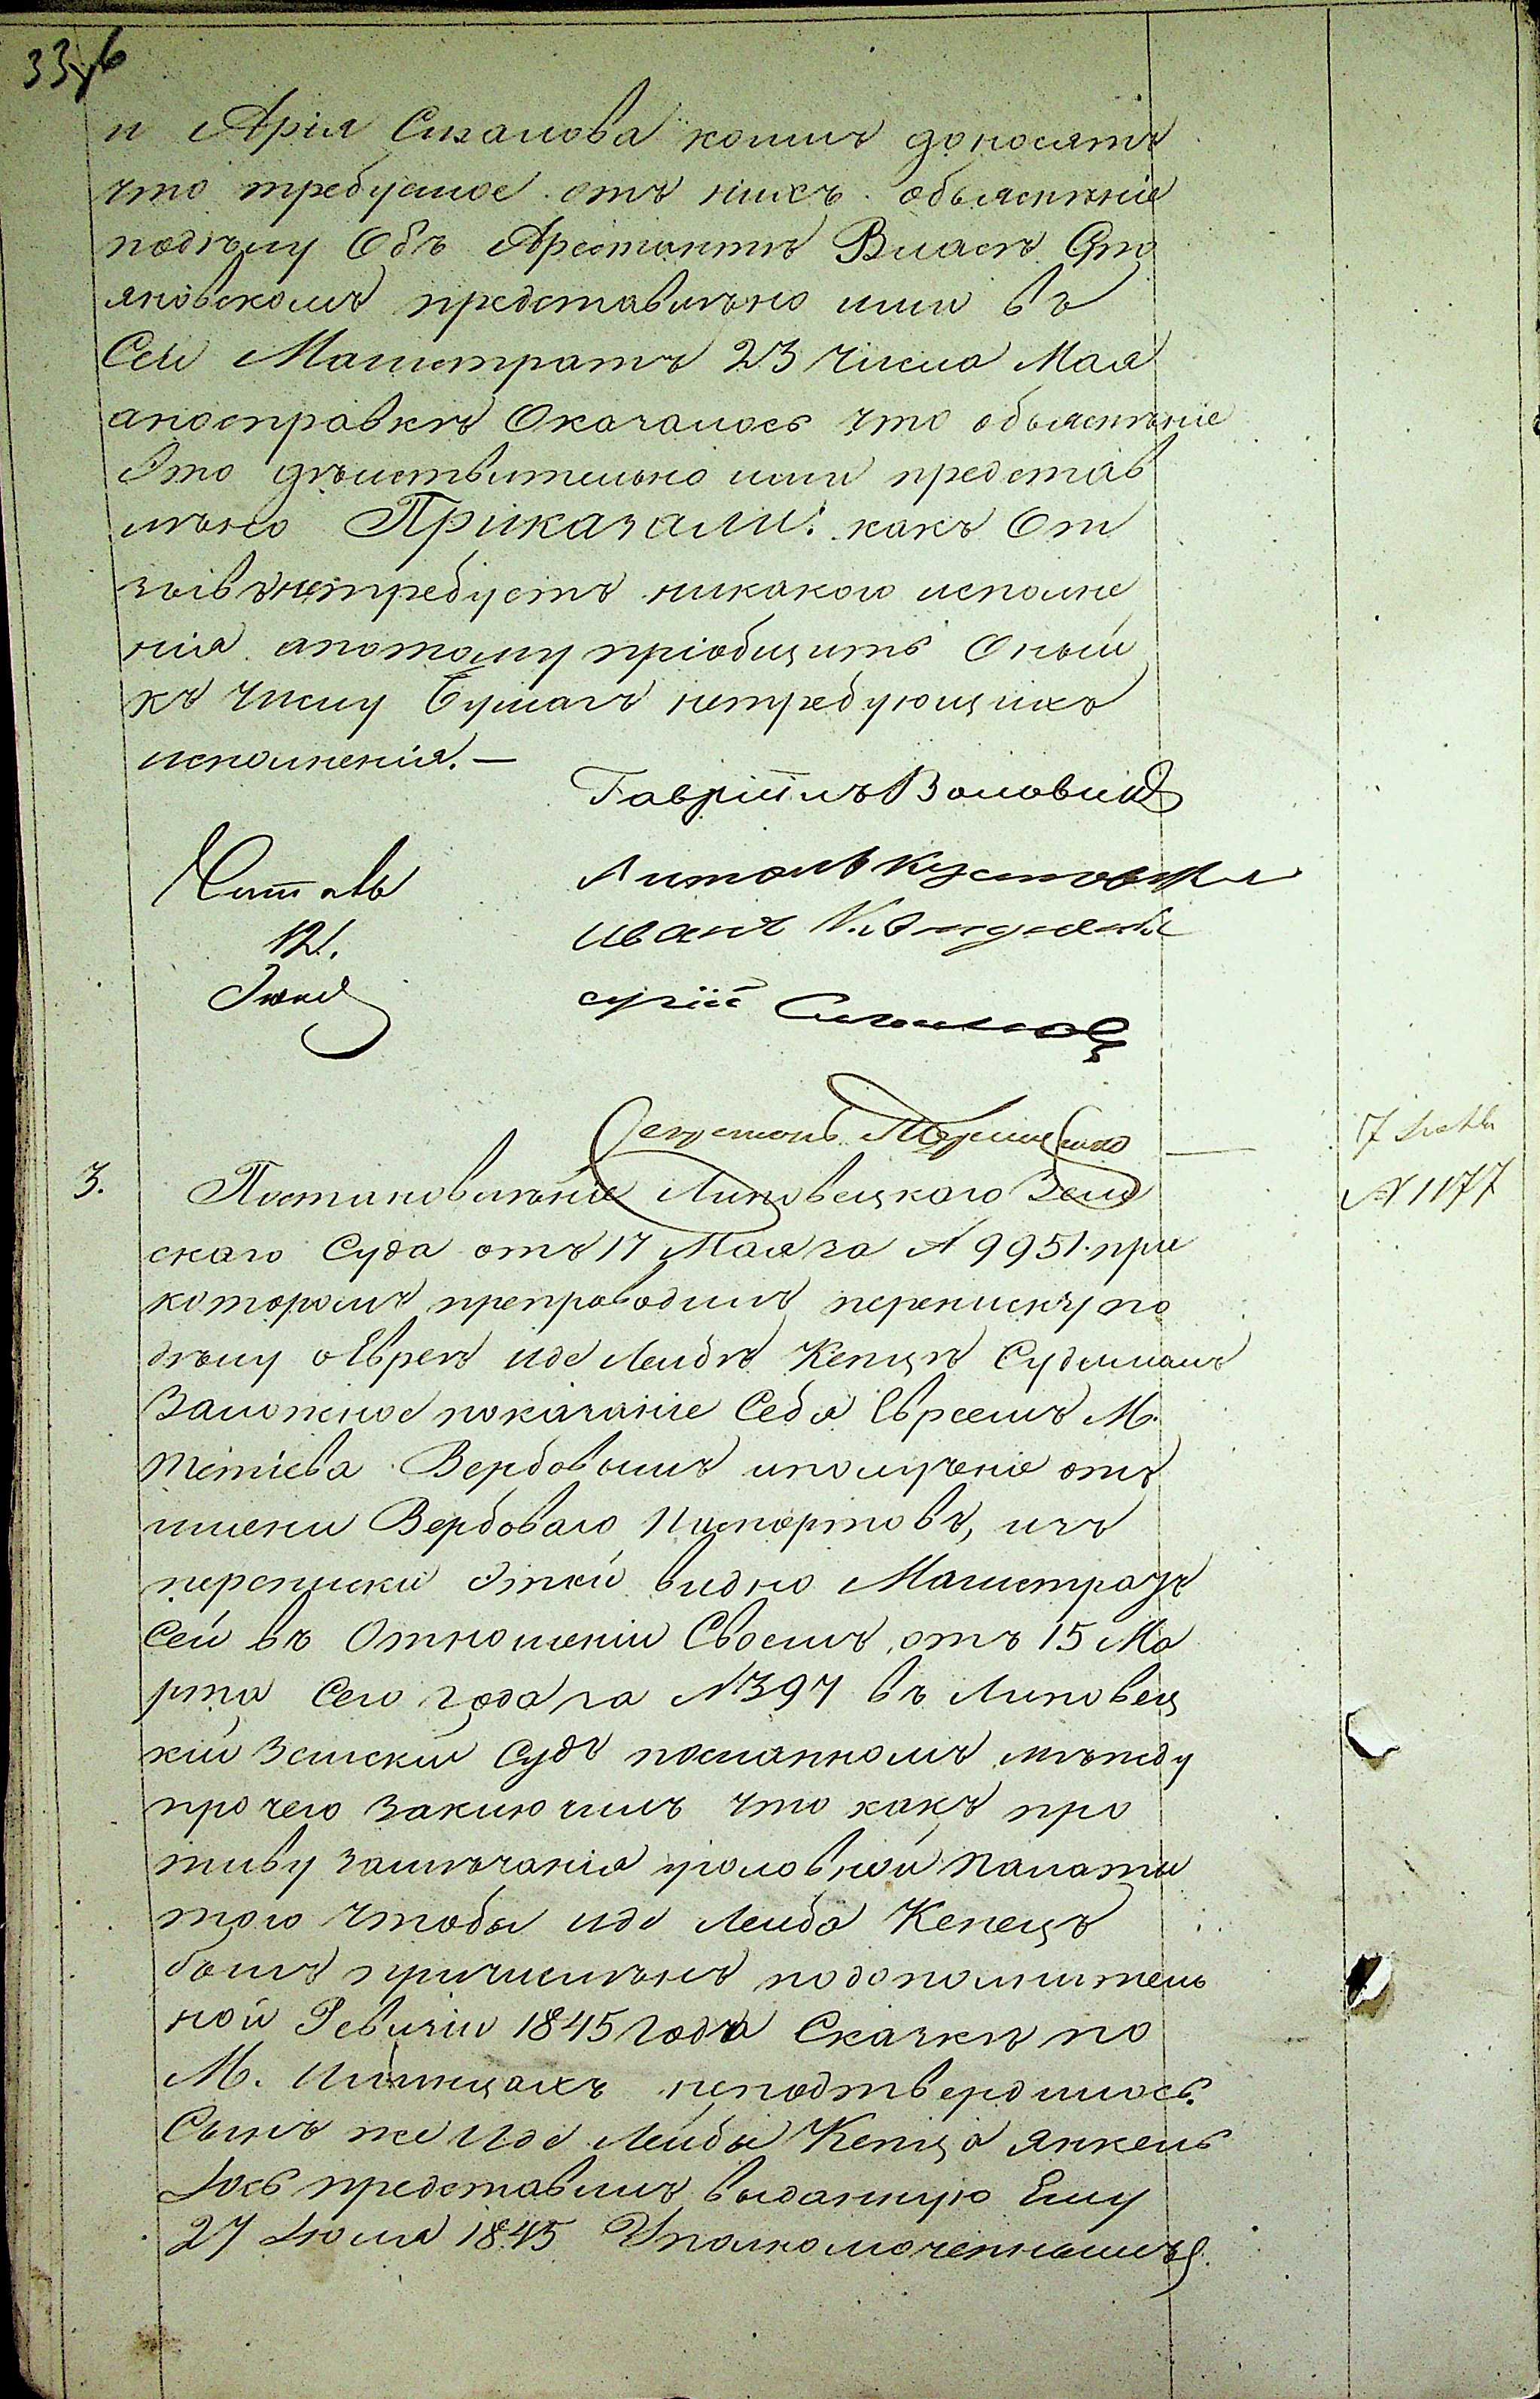 и Арія Сиганова коимъ доносятъ
что требуемое отъ нихъ объясненіе
подѣлу Объ Арестантѣ Власѣ Сто
яновскомъ представлѣно ими въ
Сей Магистратъ 23 Числа Мая
апосправкѣ Оказалось что объясненіе
Это дѣйствительно ими представ
лѣно Приказали: какъ От
зывъ нетребуетъ никакого исполне
нія апотому пріобщить Оный
къ Числу Бумагъ нетребующихъ
исполненія.—
Гавріилъ Воловик
Читалъ
Иванъ
арій
3. Постановленіе Липовецкого Зем
7
№ 1177
ского Суда отъ 17 Мая за № 9951. при
которомъ препроводилъ переписку по
дѣлу оЕвреѣ Иде Лейбѣ Кепцѣ Судимомъ
Заложное показаніе Себя Евреемъ М.
Тетіева Вербовымъ иполученіе отъ
имени Вербоваго Паспортовъ, изъ
переписки этой видно Магистратъ
Сей въ Отношеніи Своемъ отъ 15 Ма
рта Сего года за № 397 въ Липовец
кій Земскій Судъ посланномъ мѣжду
прочего Заключилъ что какъ про
тиву Замѣчанія уголовной палаты
того Чтобы Иде Лейба Кепецъ
былъ причислѣнъ подополнитель
ной Ревизіи 1845 года Сказкѣ по
М. Илинцахъ неподтвердилось.
Сынъ же Иде Лейбы Кепца Янкель
Іось представилъ выданную Ему
27 Іюля 1845 Уполномоченнымъ